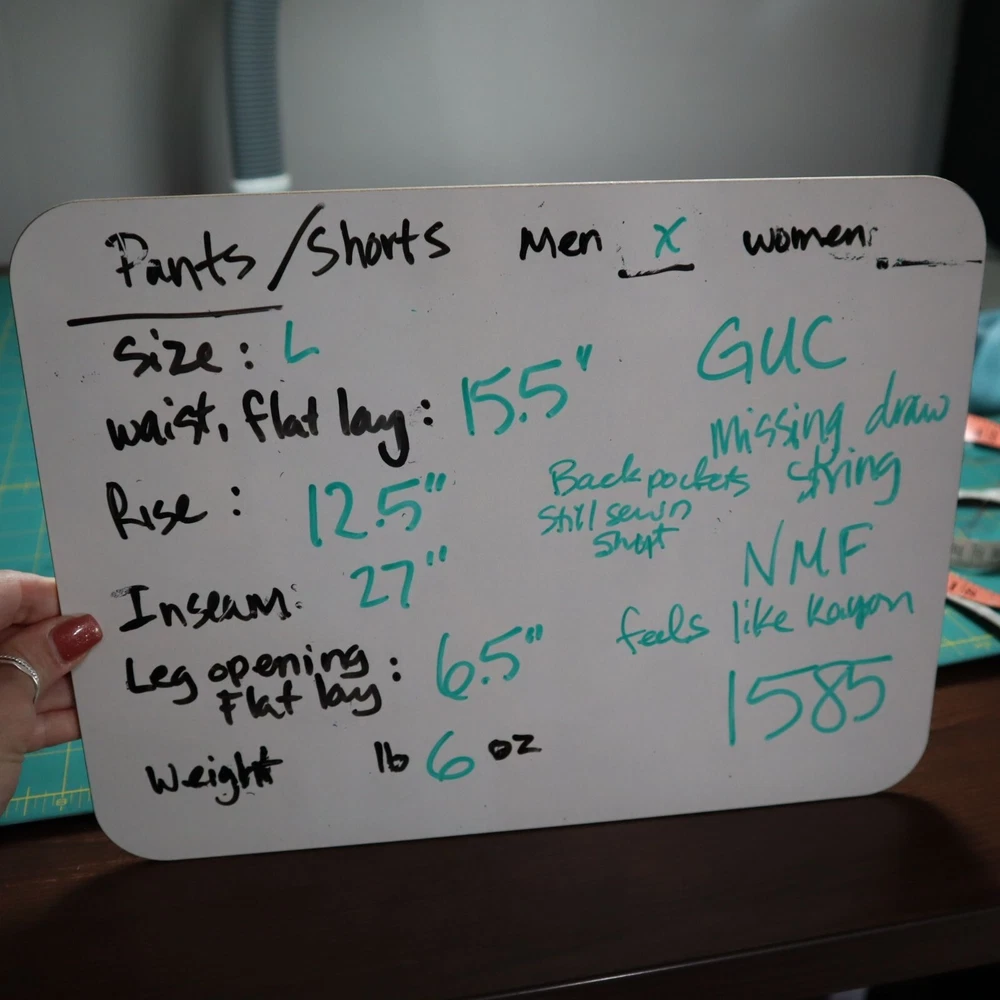 Pants/Shorts Men X women:
Size: L
GUC
waist, flat lay: 15.5"
Missing draw
string
Rise: 12.5"
Back pockets
still sewn
shut
NMF
Inseam: 27"
feels like Rayon
Leg opening
Flat lay: 6.5"
1585
Weight lb 6 oz